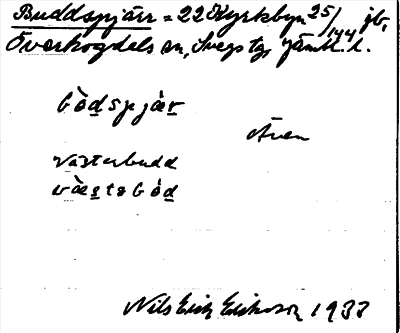 Buddspjärr = 22 Kyrkbyn 25/144 jb,
Överhogdals sn, Svegs tg, Jämtl. l.
bödspjær
Även
Västerbudd
væstaböd
Nils Erik Eriksson 1933